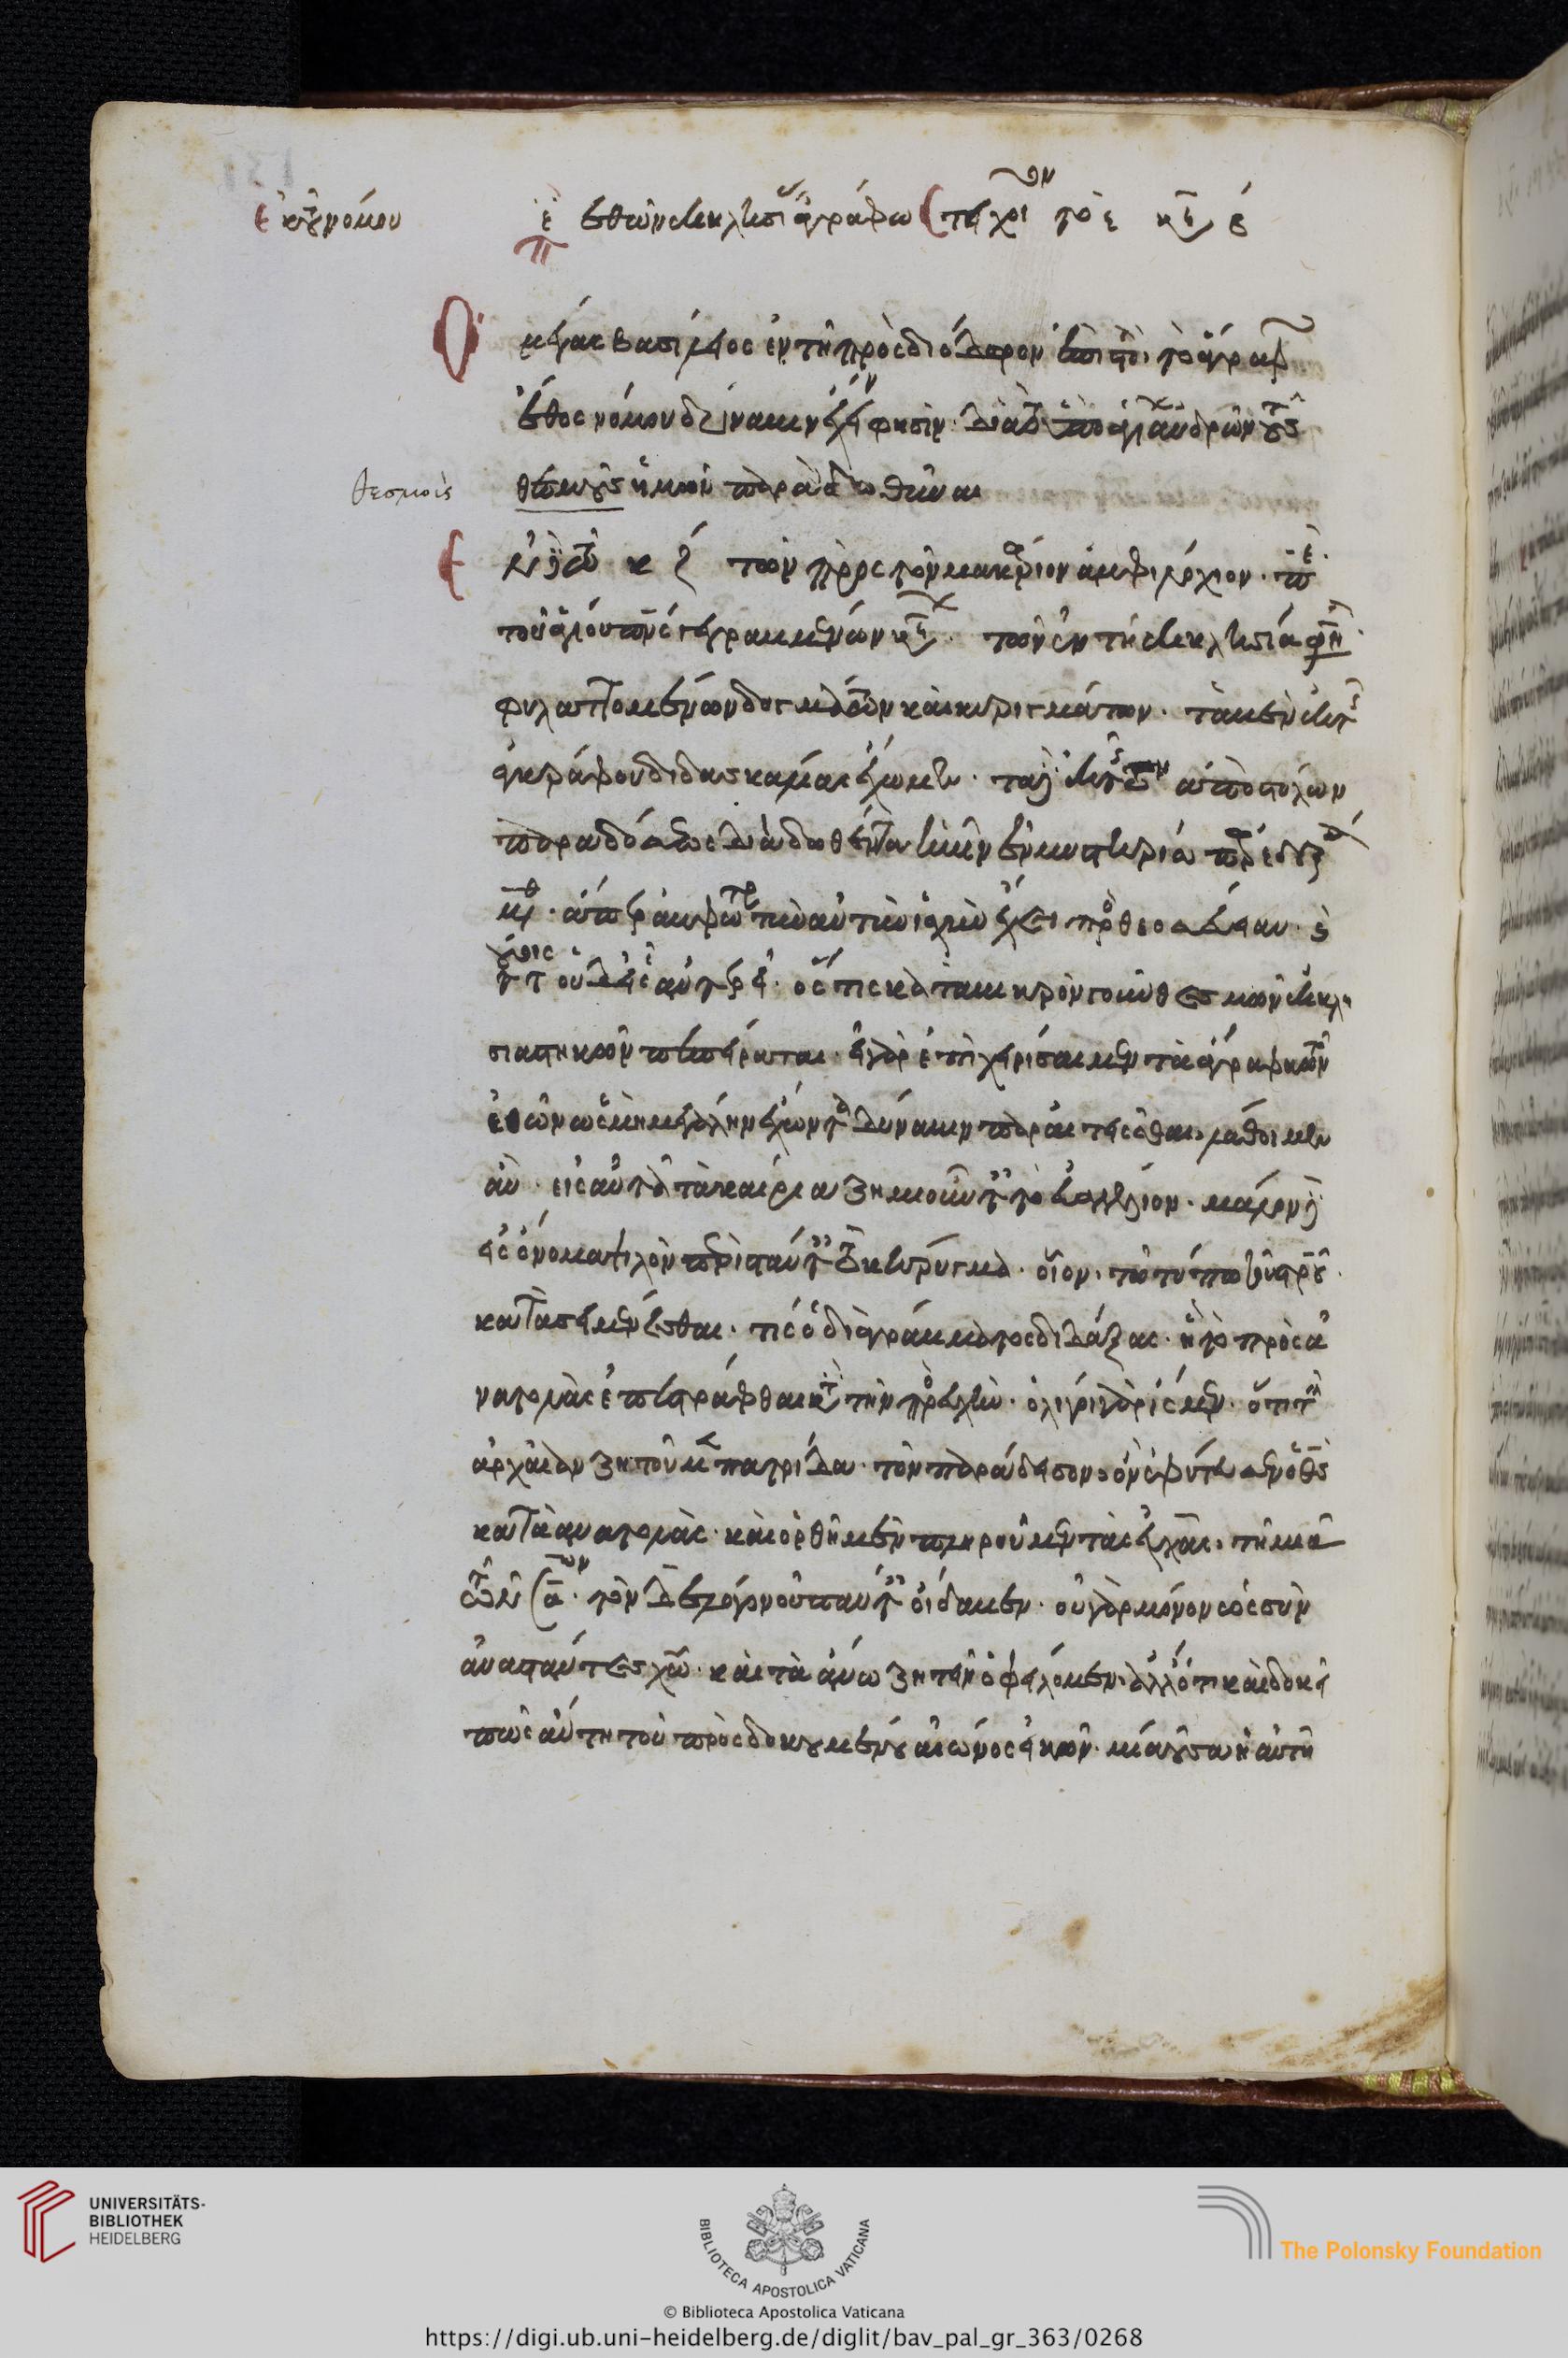 περὶ ἐθῶν ἐκκλησι ἀγράφω στοιχείων τὸ ε κεφ β
Ὁ μέγας βασίλειος ἐν τῇ πρὸς διόδωρον ἐπιστολῇ τὸ ἄγραφ
ἔθος νόμου δύναμιν ἔχειν φησὶν· διὰ τὸ ὑπὸ ἁγίων ἀνδρῶν τοὺς
θεσμοῖς
θεσμοὺς ἡμῖν παραδοθῆναι
Ἐν δὲ τῷ κζ τῶν πρὸς τὸν μακάριον ἀμφιλόχιον· περὶ
τοῦ ἁγίου πνς γεγραμμένων κεφ· τῶν ἐν τῇ ἐκκλησίᾳ φησὶ
φυλαττομένων δογμάτων καὶ κηρυγμάτων· τὰ μὲν ἐκ τῆς
ἐγγράφου διδασκαλίας ἔχομεν· τὰ δὲ ἐκ τῆς τῶν ἀποστόλων
παραδόσεως διαδοθέντα ἡμῖν ἐν μυστηρίῳ παρεδεξά
μεθα· ἅπερ ἀμφότερα τὴν αὐτὴν ἰσχὺν ἔχει πρὸς θεοσέβειαν· καὶ
τούτοις οὐδεὶς ἀντερεῖ· ὅστις κατὰ μικρὸν γοῦν θεσμῶν ἐκκλη
σιαστικῶν πεπείραται· εἰ γὰρ ἐπιχειρήσαιμεν τὰ ἄγραφα τῶν
ἐθῶν ὡς μὴ μεγάλην ἔχοντα δύναμιν παραιτεῖσθαι, λάθοιμεν
ἂν εἰς αὐτὰ τὰ καίρια ζημιοῦντες τὸ εὐαγγέλιον· μᾶλλον δὲ
εἰς ὄνομα ψιλὸν περιϊστάντες τὸ κήρυγμα· οἷον· τῷ τύπῳ τοῦ στρου
κατασημαίνεσθαι· τίς ὁ διὰ γράμματος διδάξας· ἢ τὸ πρὸς ἀ
νατολὰς ἐπεστράφθαι κατὰ τὴν προσευχὴν· ὀλίγοι γὰρ ἴσμεν· ὅτι τὴν
ἀρχαίαν ζητοῦμεν πατρίδα· τὸν παράδεισον ὃν ἐφύτευσεν ὁ θς
κατὰ ἀνατολὰς· καὶ ὀρθοὶ μὲν πληροῦμεν τὰς εὐχὰς· τῇ μιᾷ
τῶν σαββάτων· τὸν δὲ λόγον οὐ πάντες οἴδαμεν· οὐ γὰρ μόνον ὡς συν
αναστάντες χῶ· καὶ τὰ ἄνω ζητεῖν ὀφείλομεν· ἀλλ' ὅτι καὶ δοκεῖ
πως αὕτη τοῦ προσδοκουμένου αἰῶνος εἰκὼν· μία οὖσα ἡ αὐτὴ
UNIVERSITÄTS-
BIBLIOTHEK
HEIDELBERG
BIBLIOTECA APOSTOLICA VATICANA
The Polonsky Foundation
© Biblioteca Apostolica Vaticana
https://digi.ub.uni-heidelberg.de/diglit/bav_pal_gr_363/0268